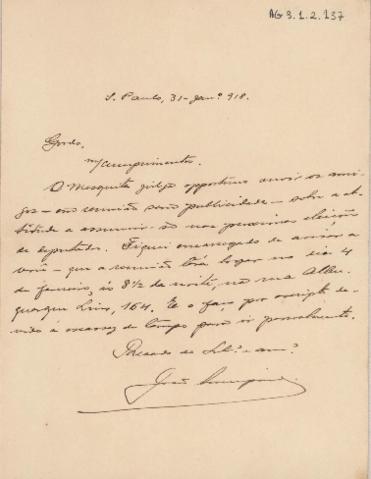 AG 3.1.2.137
S. Paulo, 31-Janº 918.
Gordo,
m/ cumprimentos.
O Mesquita julga opportuno ouvir os ami-
gos - em reunião sem publicidade - sobre a at-
titude a assumir-se nas proximas eleições
de deputados. Fiquei encarregado de avisar a
você - que a reunião terá logar no dia 4
de fevereiro, ás 8½ da noite, na rua Albu-
querque Lins, 164. E o faço por escripto de-
vido á escassez de tempo para ir pessoalmente.
Recado do Colª e amº
João